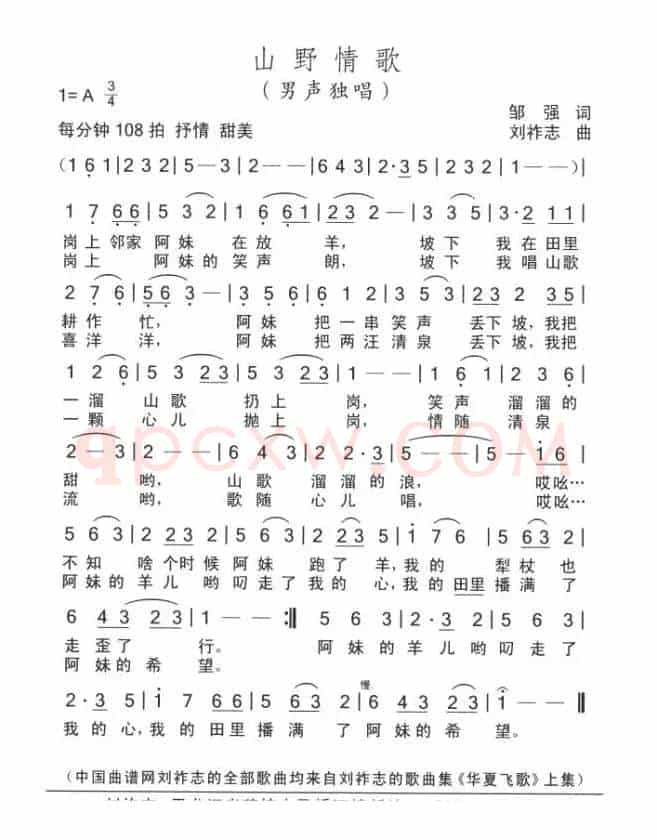 山野情歌
（男声独唱）
1=A 3/4
邹强 词
每分钟 108 拍 抒情 甜美
刘祚志 曲
(1 6 1 | 2 3 2 | 5 — 3 | 2 — — | 6 4 3 | 2 · 3 5 | 2 3 2 | 1 — — ) |
1 7 6 6 | 5 3 2 | 1 6 6 1 | 2 3 2 — | 5 3 5 | 3 · 2 1 1 |
岗上邻家阿妹在放羊，坡下我在田里
岗上阿妹的笑声朗，坡下我唱山歌
2 7 6 | 5 6 3 — | 3 5 6 | 1 6 1 2 | 3 5 3 | 2 · 3 5 |
耕作忙，阿妹把一串笑声丢下坡，我把
喜洋洋，阿妹把两汪清泉丢下坡，我把
1 2 6 | 5 3 2 3 | 1 — — | 5 3 5 6 | 3 2 3 |
一溜山歌扔上岗，笑声溜溜的
一颗心儿抛上岗，情随清泉
2 — 3 | 2 — — | 5 3 2 | 1 2 3 | 5 — — | 5 — 1 6 |
甜哟，山歌溜溜的浪，哎吆…
流哟，歌随心儿唱，哎吆…
5 6 3 | 2 2 3 | 5 6 3 | 2 · 3 5 | 1 7 6 | 5 6 3 2 |
不知啥个时候阿妹跑了羊，我的犁杖也
阿妹的羊儿哟叼走了我的心，我的田里播满了
6 4 3 2 3 | 1 — :‖ 5 6 3 | 2 2 3 | 5 6 3 |
走歪了行。阿妹的羊儿哟叼走
阿妹的希望。
慢
2 · 3 5 | 1 7 6 | 5 6 3 2 | 6 4 3 2 3 | 1 — — ‖
我的心，我的田里播满了阿妹的希望。
（中国曲谱网刘祚志的全部歌曲均来自刘祚志的歌曲集《华夏飞歌》上集）
qpcxw.com